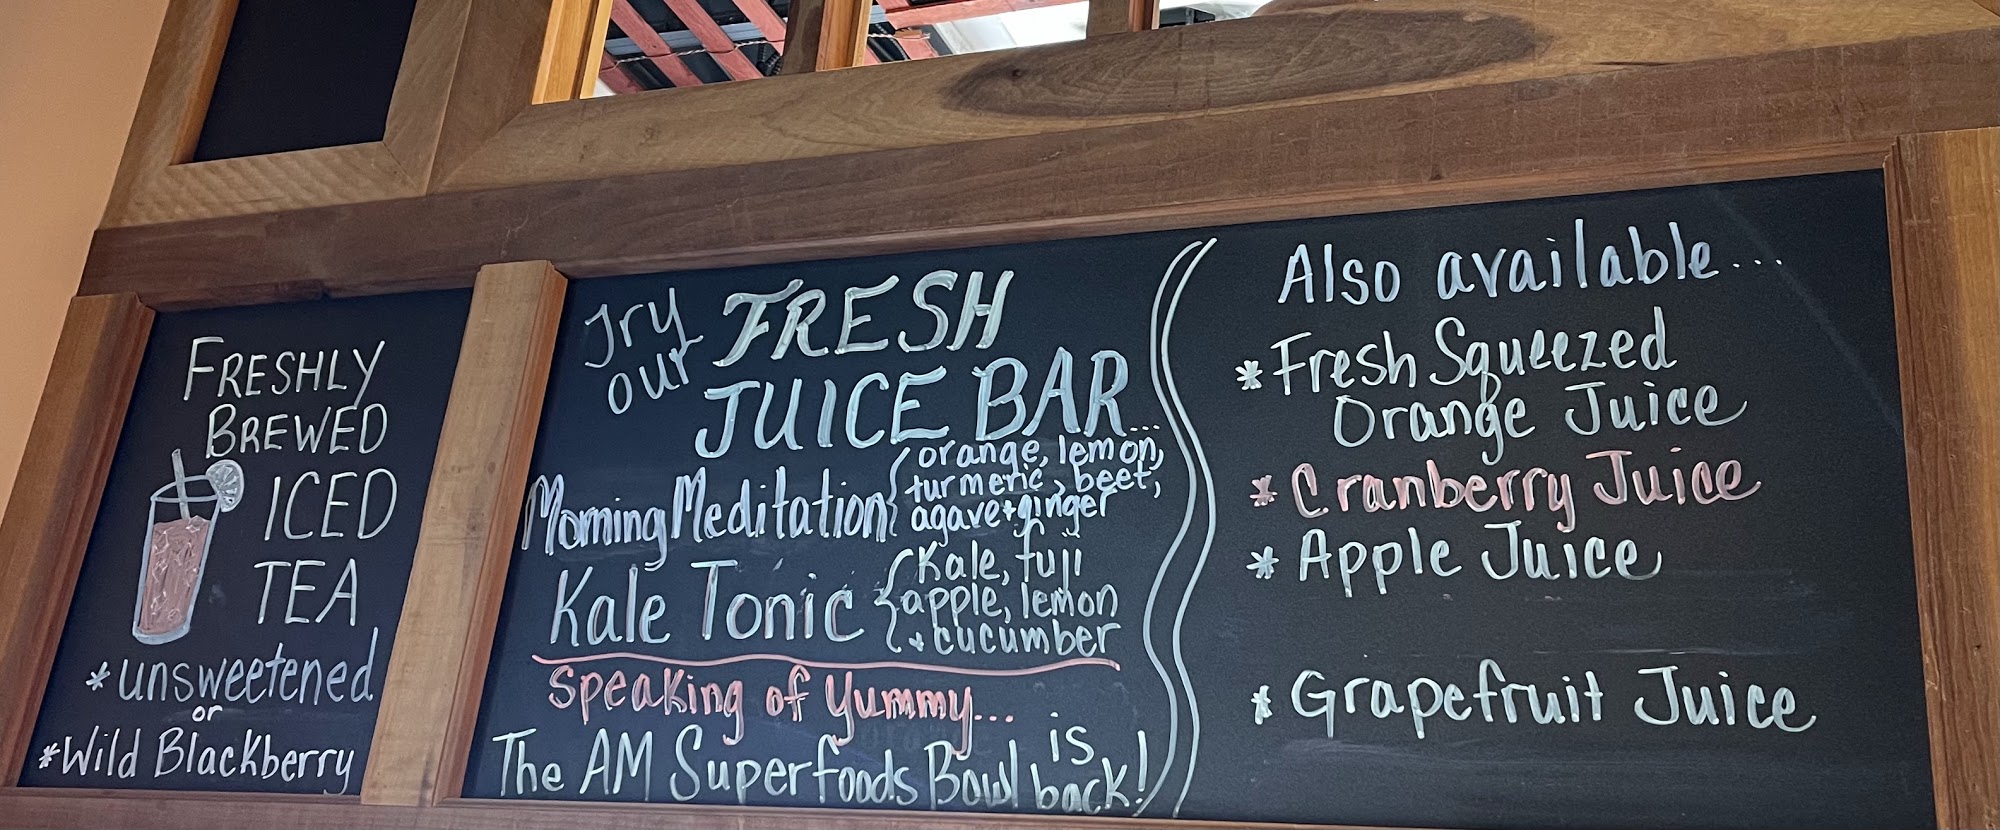 FRESHLY
BREWED
ICED
TEA
*unsweetened
or
*Wild Blackberry
Try
out
FRESH
JUICE BAR...
Morning Meditation { orange, lemon,
turmeric, beet,
agave + ginger
Kale Tonic { Kale, fuji
apple, lemon
+ cucumber
Speaking of Yummy...
The AM Superfoods Bowl is
back!
Also available...
* Fresh Squeezed
Orange Juice
* Cranberry Juice
* Apple Juice
* Grapefruit Juice